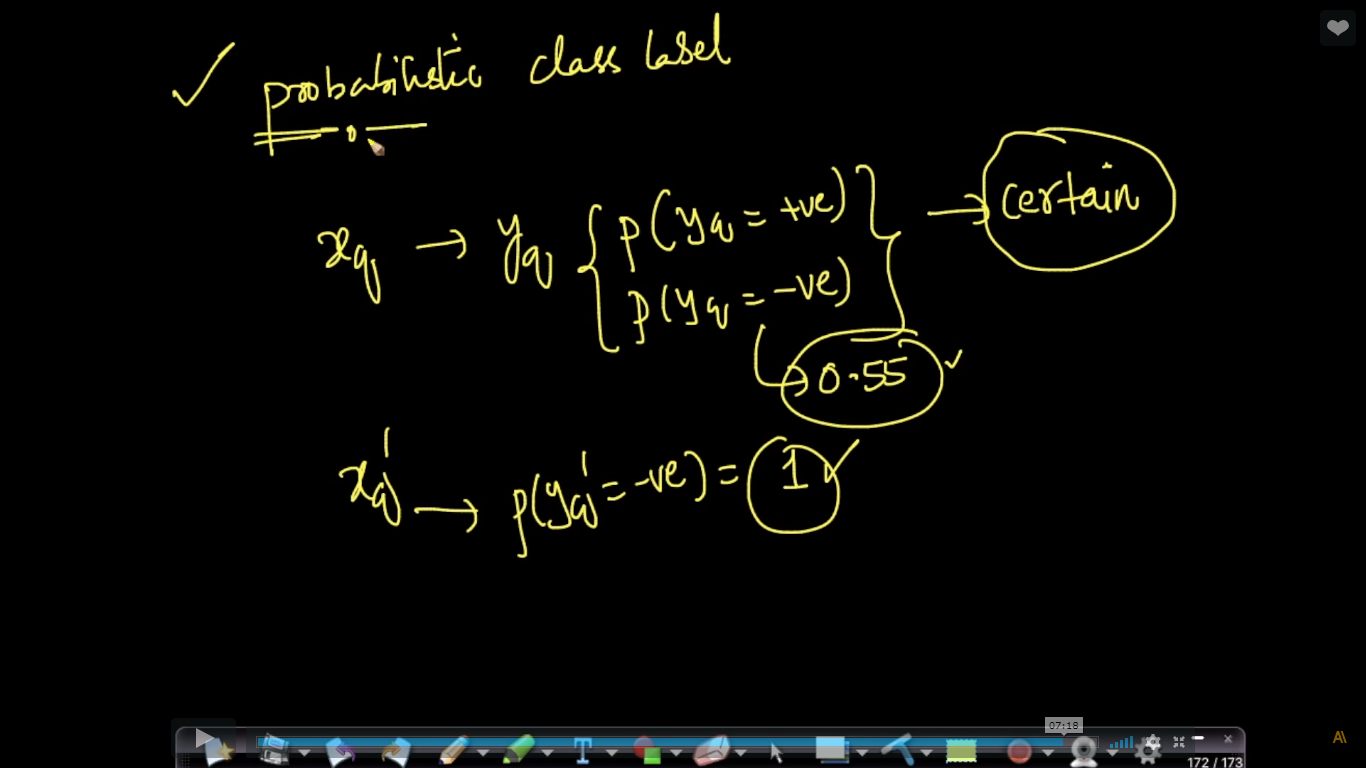 ✓ probabilistic class label
xq → yq { p(yq = +ve) } → certain
p(yq = -ve)
→ 0.55 ✓
xq' → p(yq' = -ve) = 1 ✓
07:18
T
172 / 173